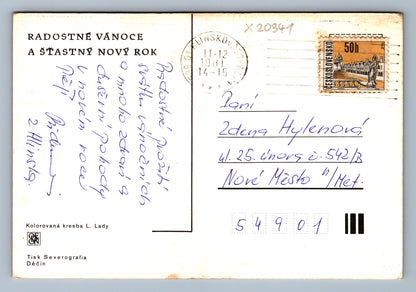 RADOSTNÉ VÁNOCE
A ŠŤASTNÝ NOVÝ ROK
Radostné prožití
svátků vánočních
a mnoho zdraví a
duševní pohody
v novém roce
přejí
z Hlinska.
Kolorovaná kresba L. Lady
Tisk Severografia
Děčín
X 20341
HLINSKO
11-12
1981
14-15
50h
ČESKOSLOVENSKO
Paní
Zdena Hylenová
ul. 25. února č. 542/B
Nové Město n/Met.
54901